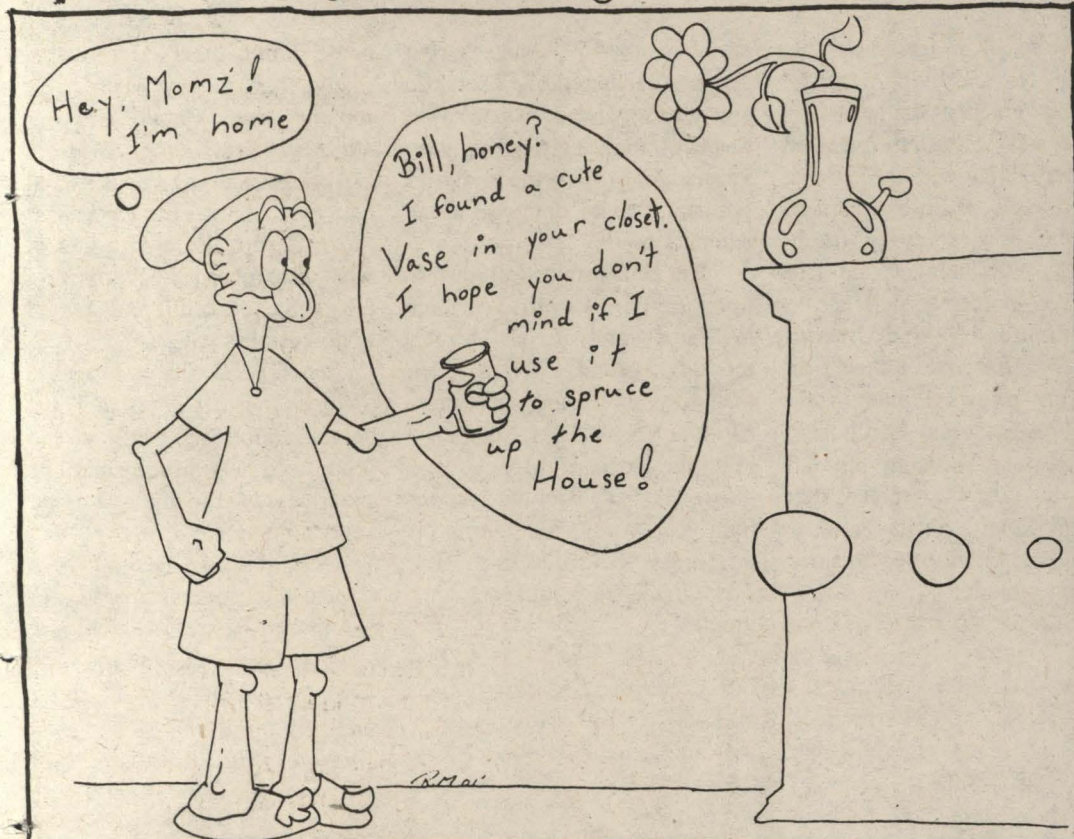 Hey, Momz'!
I'm home
Bill, honey?
I found a cute
Vase in your closet.
I hope you don't
mind if I
use it
to spruce
up the
House!